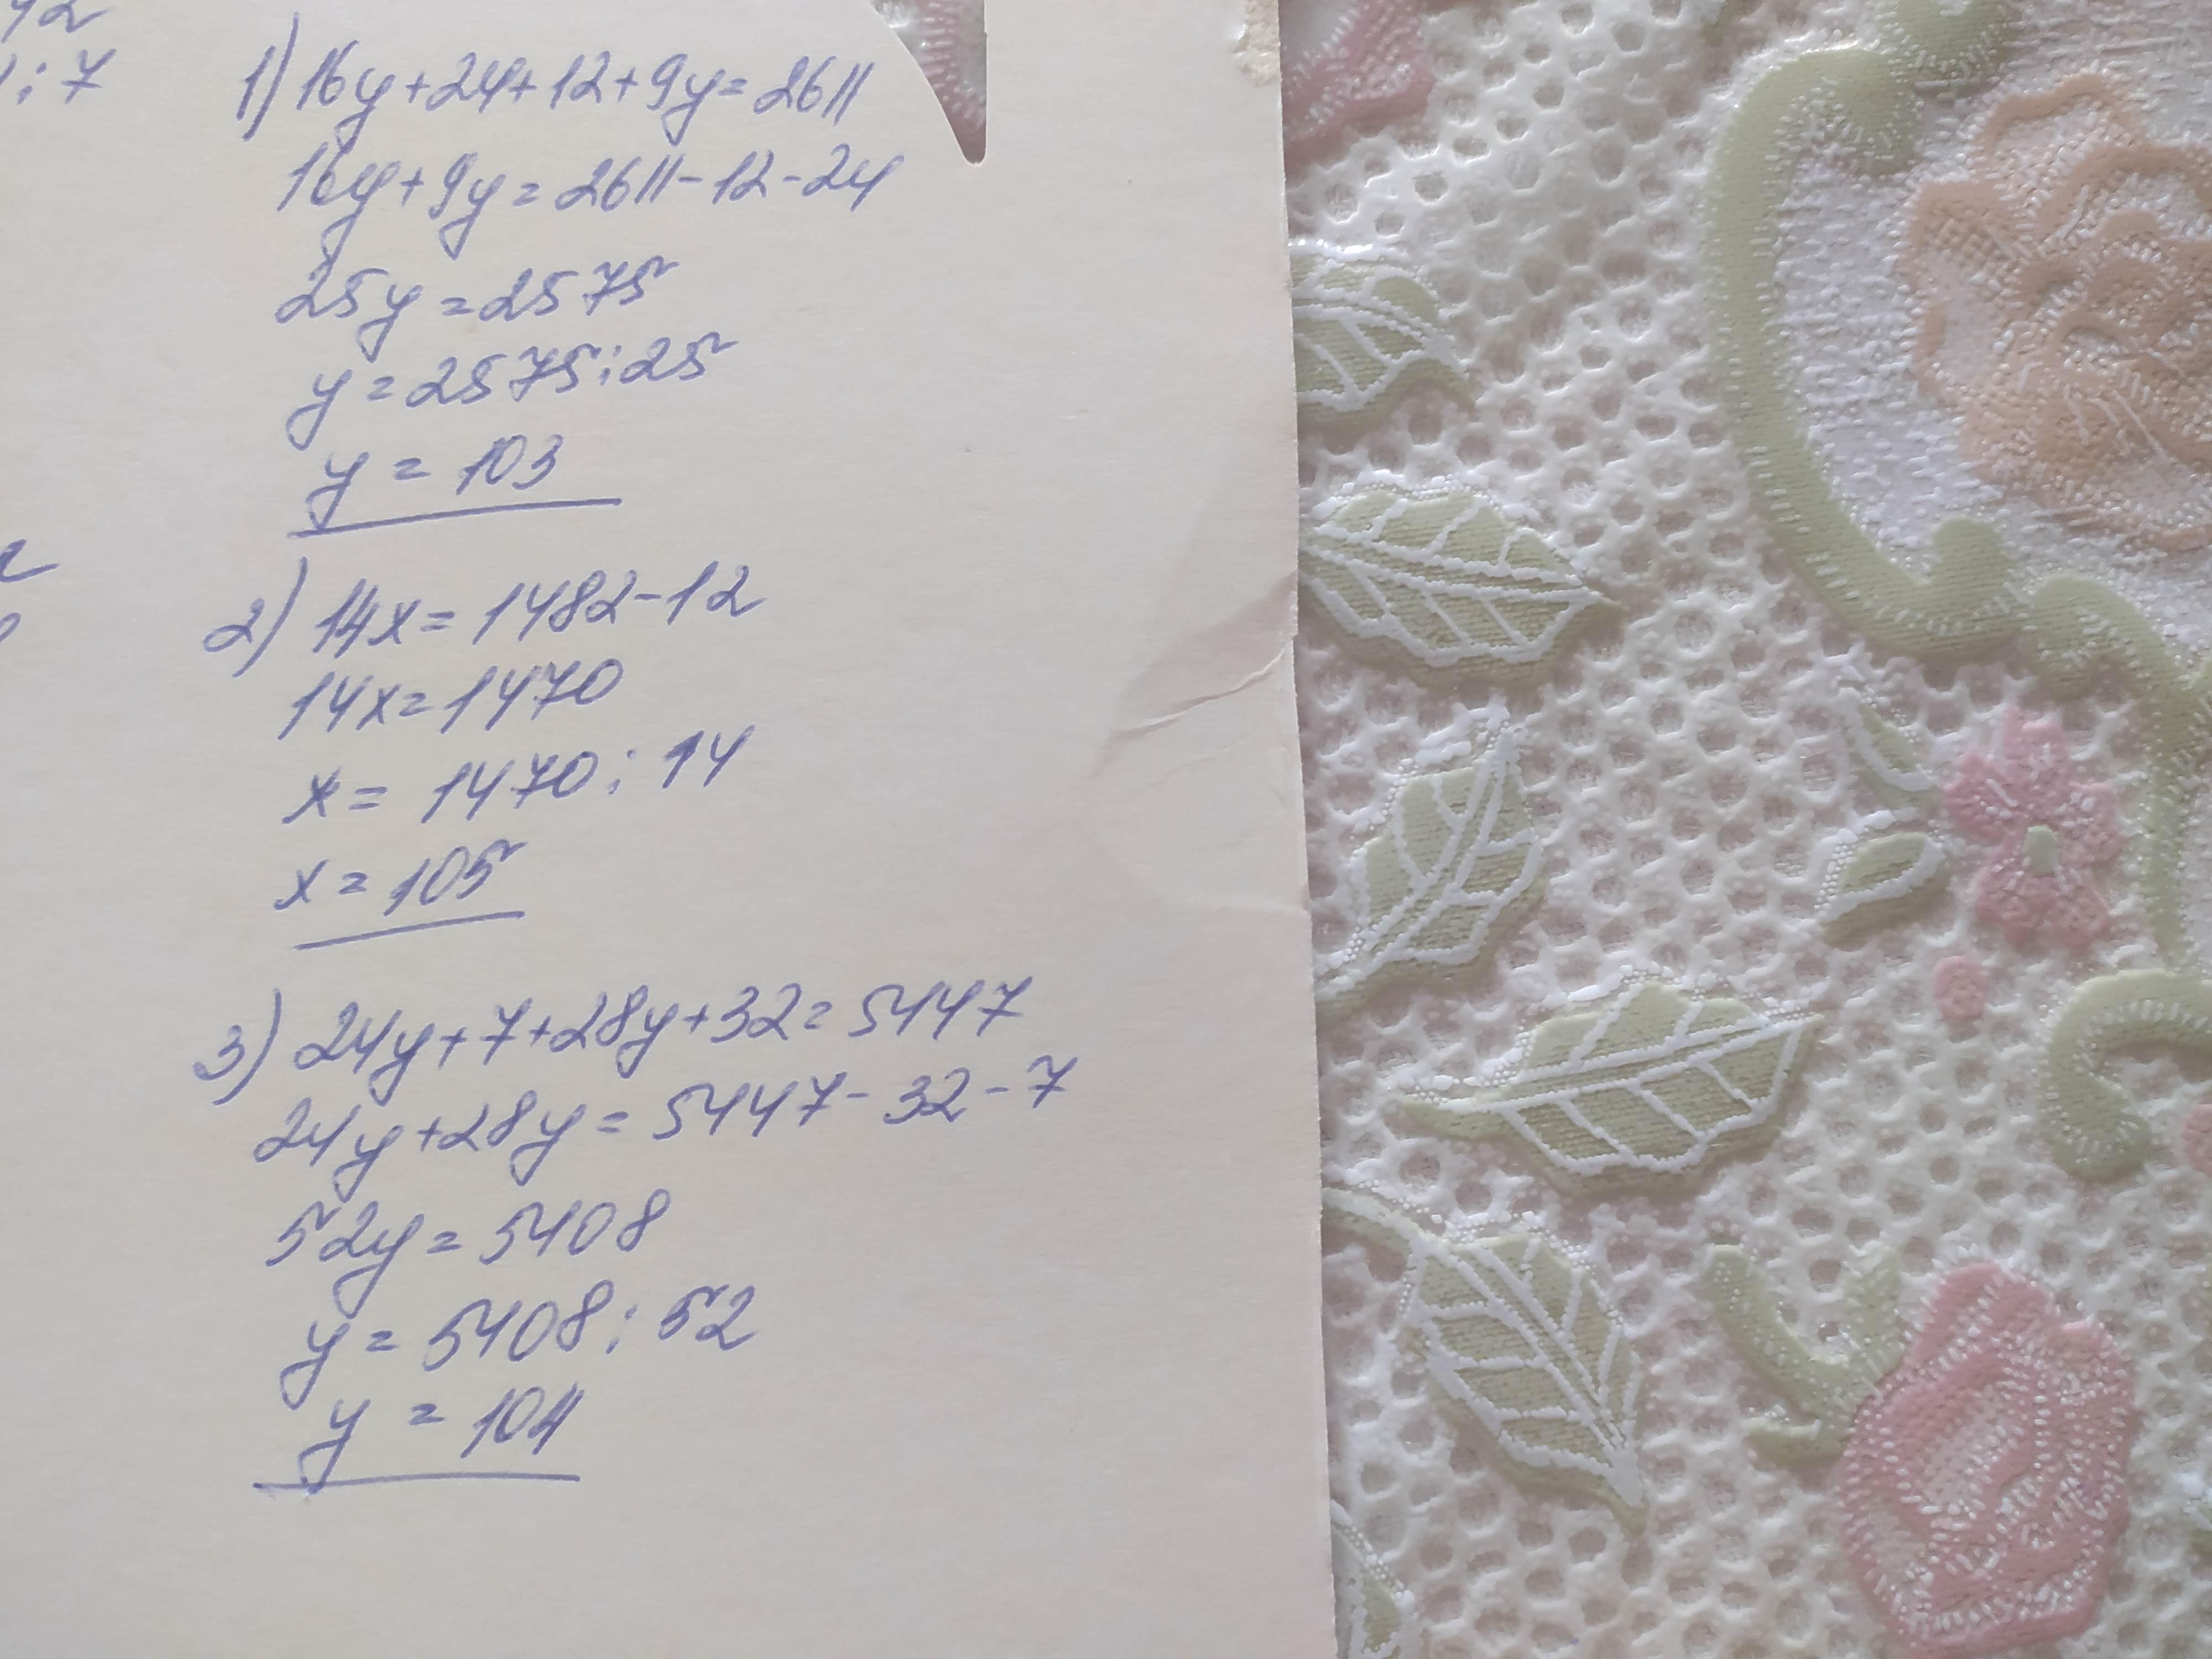 42
: 7
1) 16y+24+12+9y=2611
16y+9y=2611-12-24
25y=2575
y=2575:25
y=103
2) 14x=1482-12
14x=1470
x=1470:14
x=105
3) 24y+7+28y+32=5447
24y+28y=5447-32-7
52y=5408
y=5408:52
y=104